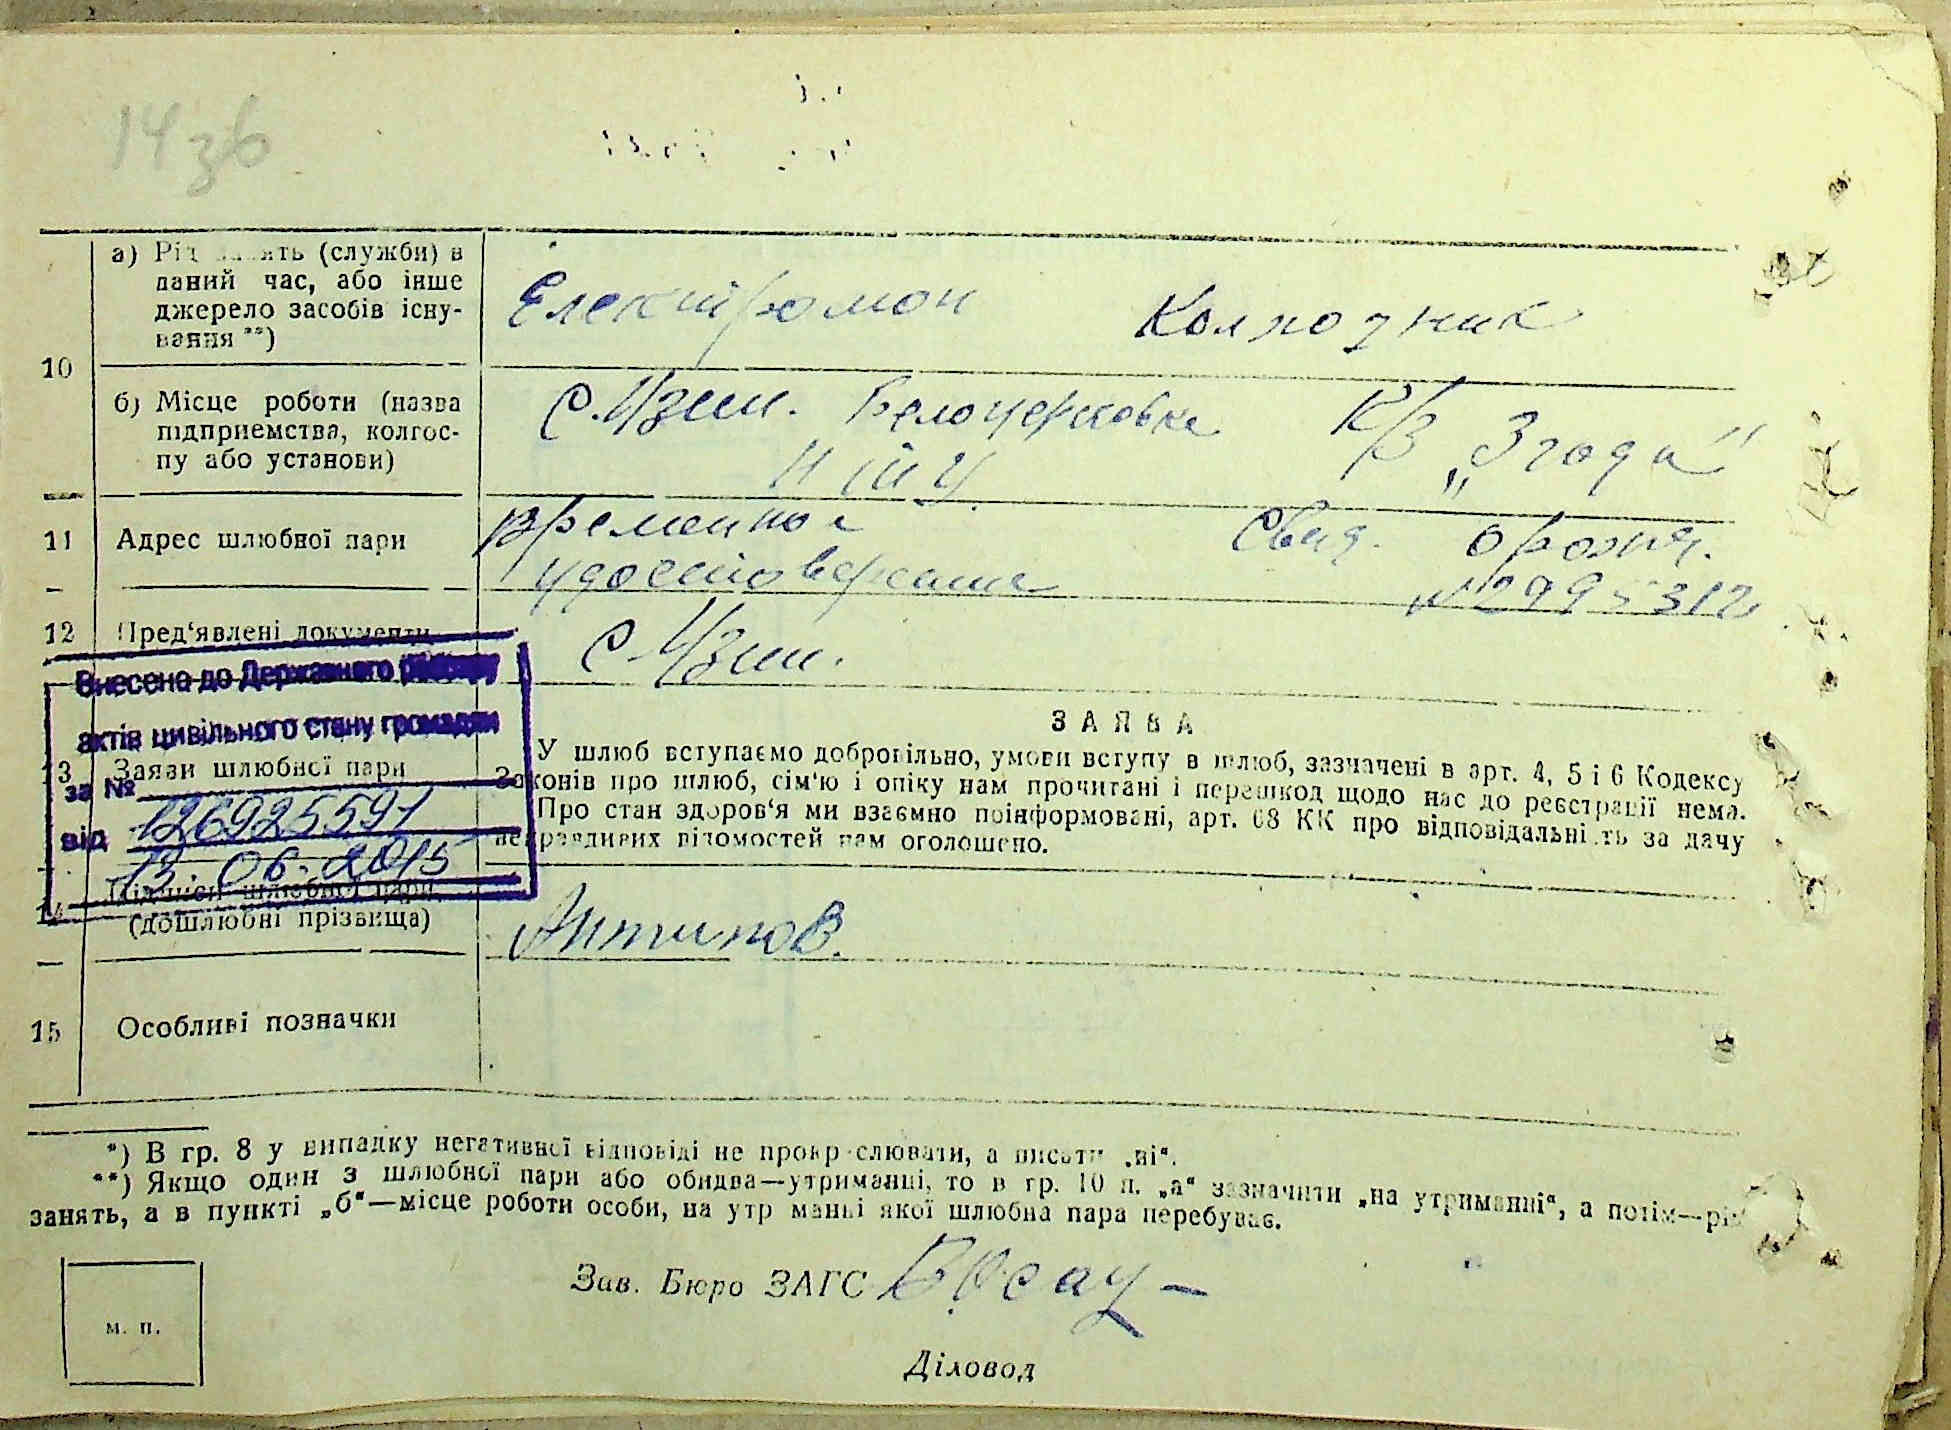 14зв
а) Рід занять (служби) в
даний час, або інше
джерело засобів існу-
вання **)
Електромон
Колхозник
10
б) Місце роботи (назва
підприємства, колгос-
пу або установи)
С. Мзин. Белоцерковка
К/з „Згода"
11 Адрес шлюбної пари
Временное
удостоверение
Свид. о рожд.
№ 2995312
12 Пред'явлені документи
С Мзин.
Внесено до Державного реєстру
актів цивільного стану громадян
за № 126925591
від 13.06.2015
13 Заяви шлюбної пари
ЗАЯВА
У шлюб вступаємо добровільно, умови вступу в шлюб, зазначені в арт. 4, 5 і 6 Кодексу
Законів про шлюб, сім'ю і опіку нам прочитані і перешкод щодо нас до реєстрації нема.
Про стан здоров'я ми взаємно поінформовані, арт. 68 КК про відповідальність за дачу
неправдивих відомостей нам оголошено.
14 Підписи шлюбної пари
(дошлюбні прізвища)
Антипов.
15 Особливі позначки
*) В гр. 8 у випадку негативної відповіді не прокреслювати, а писати „ні“.
**) Якщо один з шлюбної пари або обидва—утриманці, то в гр. 10 п. „а“ зазначити „на утриманні“, а потім—рід
занять, а в пункті „б“—місце роботи особи, на утриманні якої шлюбна пара перебуває.
Зав. Бюро ЗАГС
м. п.
Діловод